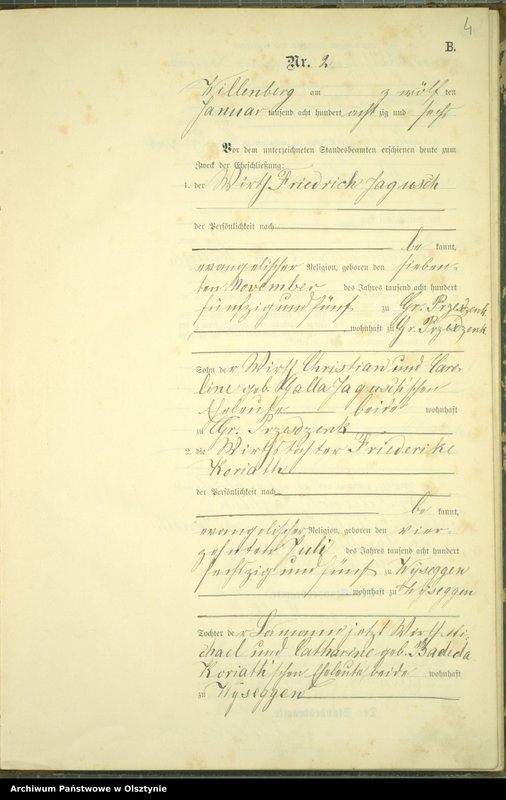 4
B.
Nr. 2
Willenberg am zwölf ten
Januar tausend acht hundert acht zig und sechs
Vor dem unterzeichneten Standesbeamten erschienen heute zum
Zweck der Eheschließung:
1. der Wirth Friedrich Jagusch
der Persönlichkeit nach
be kannt,
evangelischer Religion, geboren den sieben-
ten November des Jahres tausend acht hundert
fünfzig und fünf zu Gr. Przesdzenk
, wohnhaft zu Gr. Przesdzenk
Sohn der Wirth Christian und Caro-
line geb. Galla Jagusch'schen
Eheleute beide wohnhaft
zu Gr. Przesdzenk
2. die Wirthstochter Friederike
Koriath
der Persönlichkeit nach
be kannt,
evangelischer Religion, geboren den vier-
zehnten Juli des Jahres tausend acht hundert
sechszig und fünf zu Wyseggen
, wohnhaft zu Wyseggen
Tochter der jetzt Wirth Mi-
chael und Catharine geb. Badeda
Koriath'schen Eheleute beide wohnhaft
zu Wyseggen
Archiwum Państwowe w Olsztynie